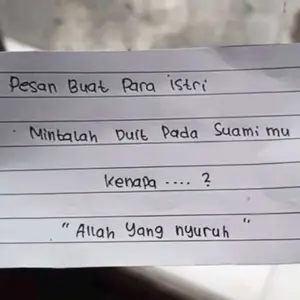 Pesan Buat Para istri
· Mintalah Duit Pada Suami mu
Kenapa .... ?
" Allah yang nyuruh "